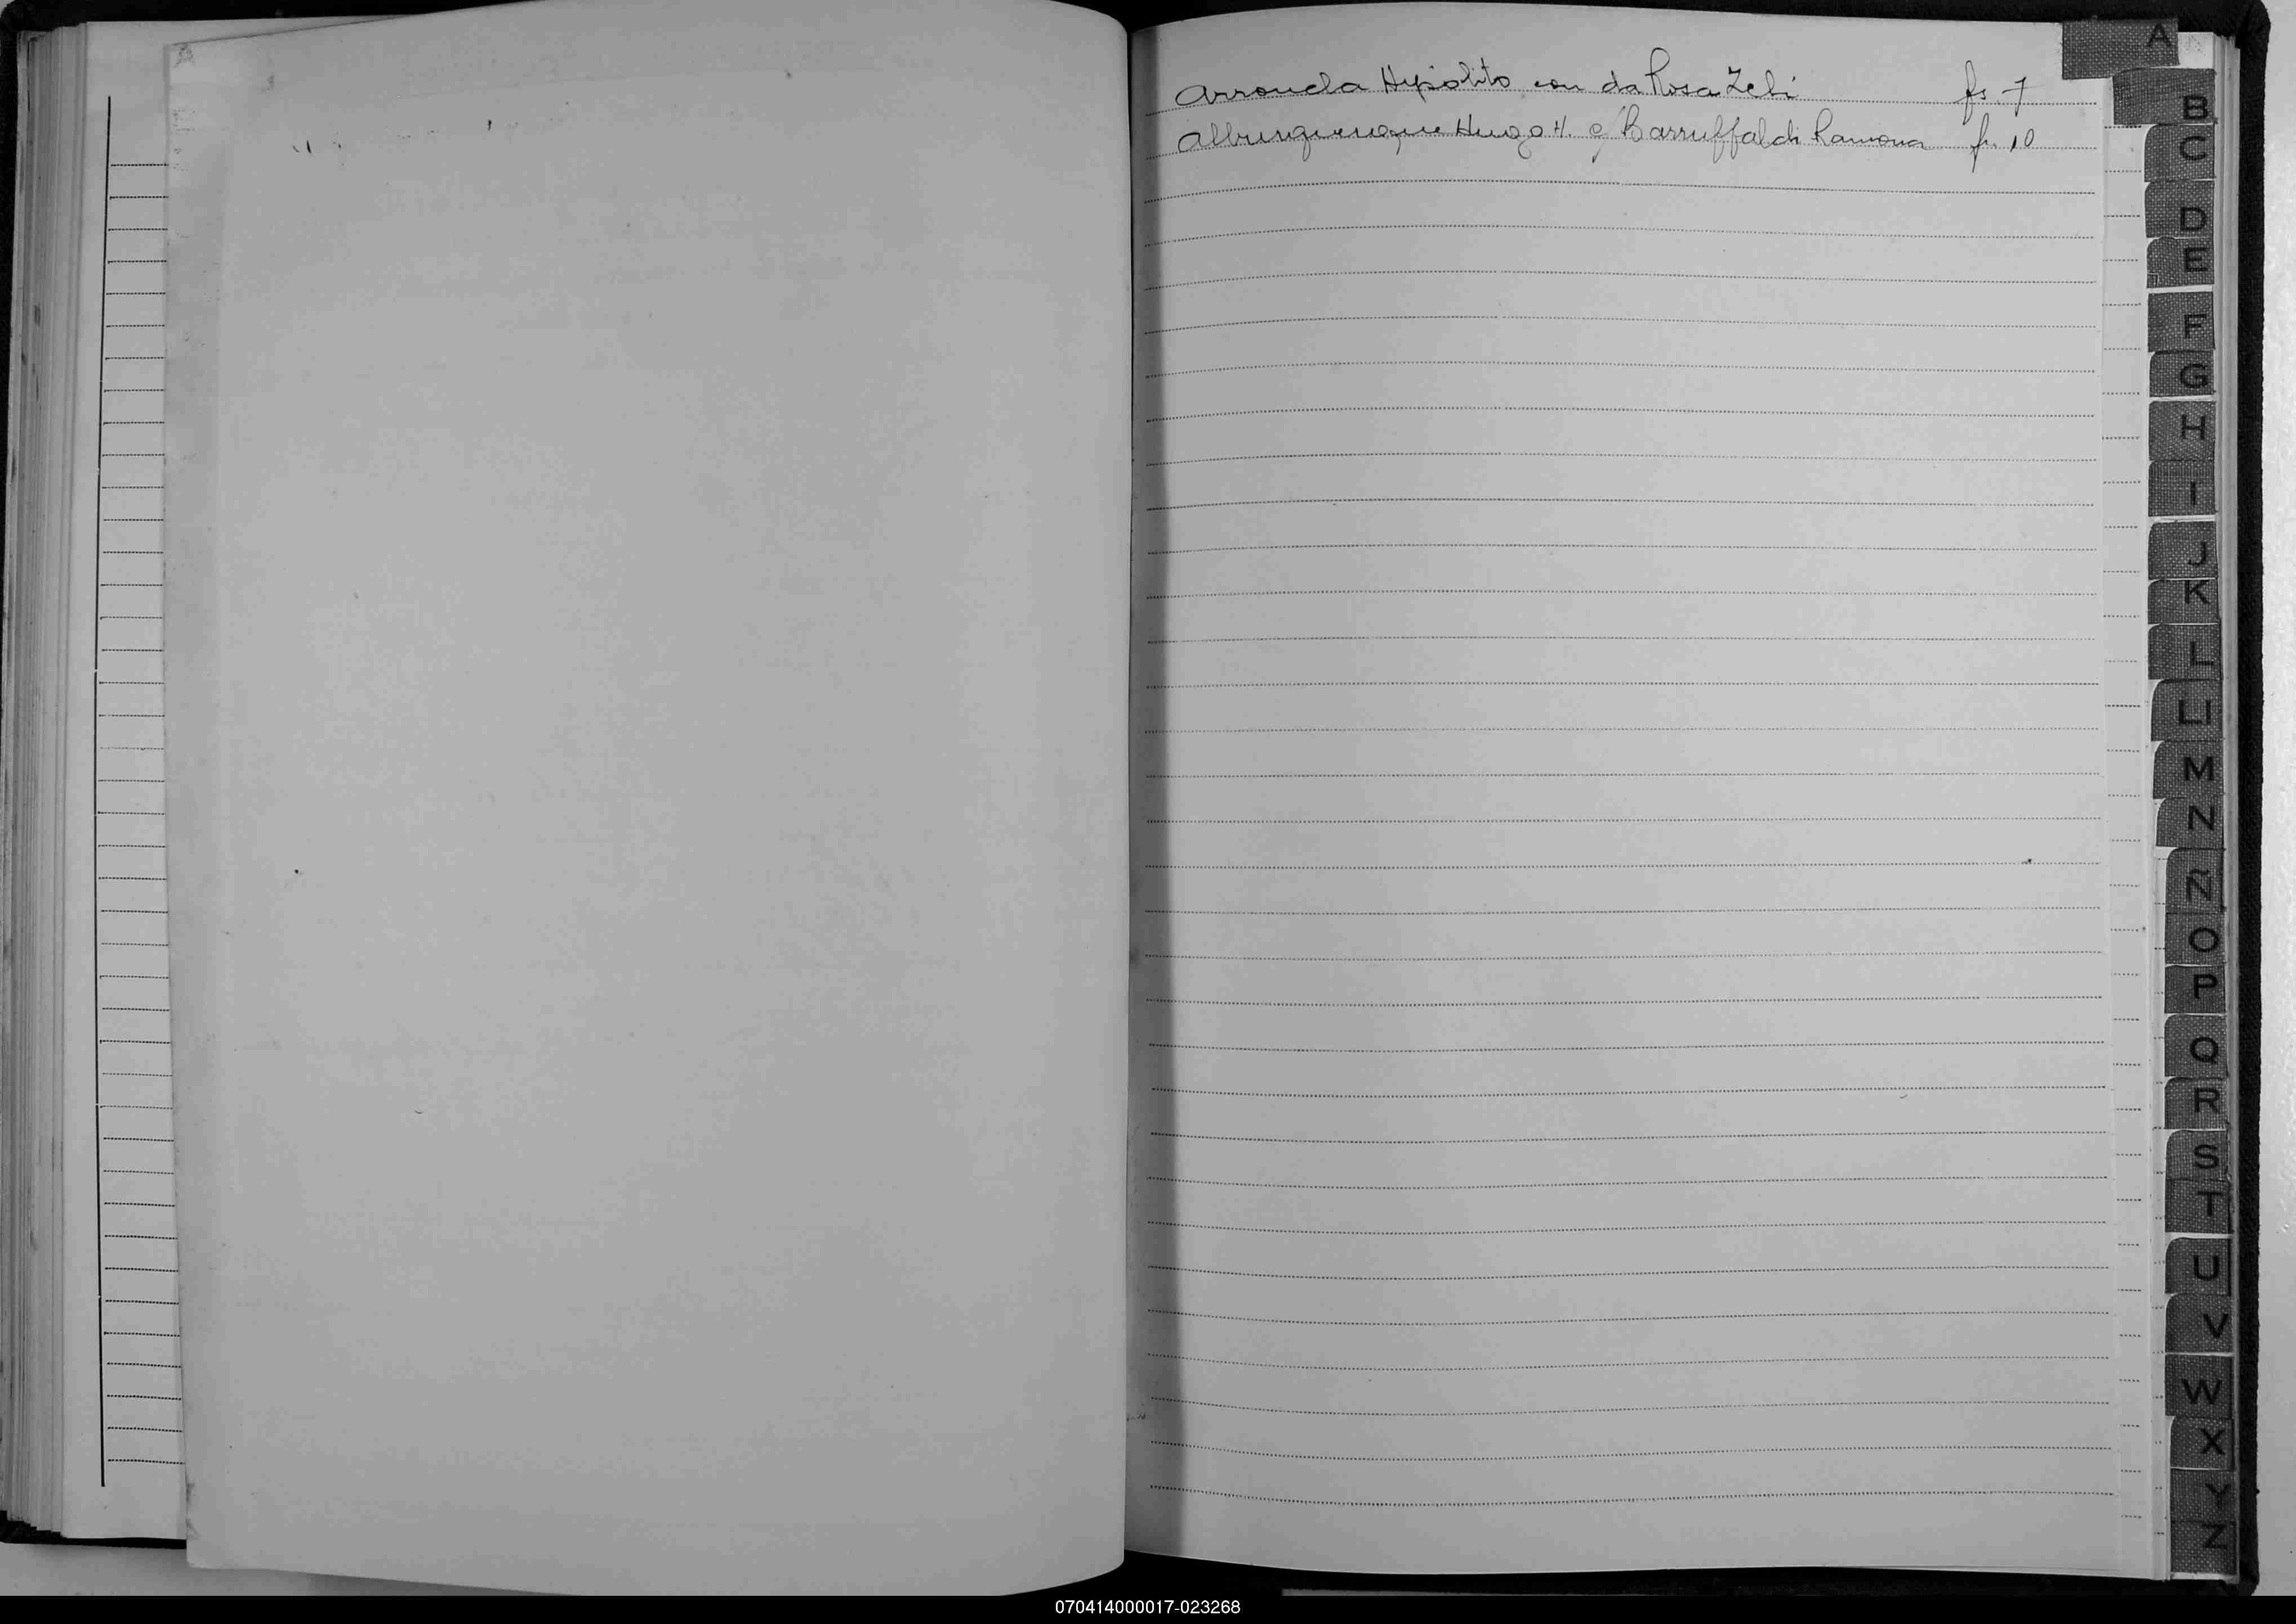 Arrouela Hipólito con da Rosa Zeli fs. 7
Alburquerque Hugo H. c/ Barruffaldi Ramona fs. 10
A
B
C
D
E
F
G
H
I
J
K
L
Ll
M
N
Ñ
O
P
Q
R
S
T
U
V
W
X
Y
Z
070414000017-023268